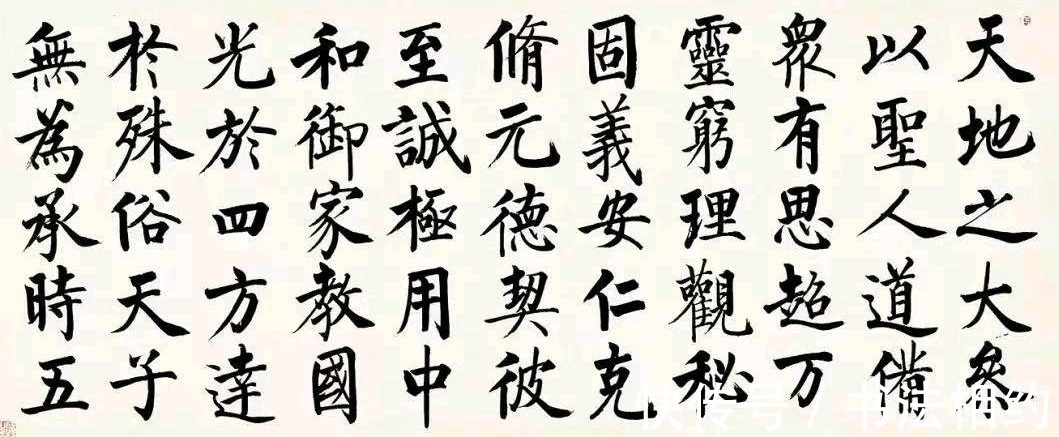 天地之大矣
以聖人道
衆有思超万
靈窮理觀秘
固義安仁克
脩元德契彼
至誠極用中
和御家教國
光於四方達
於殊俗天子
無為承時五
快传号 / 书法相约